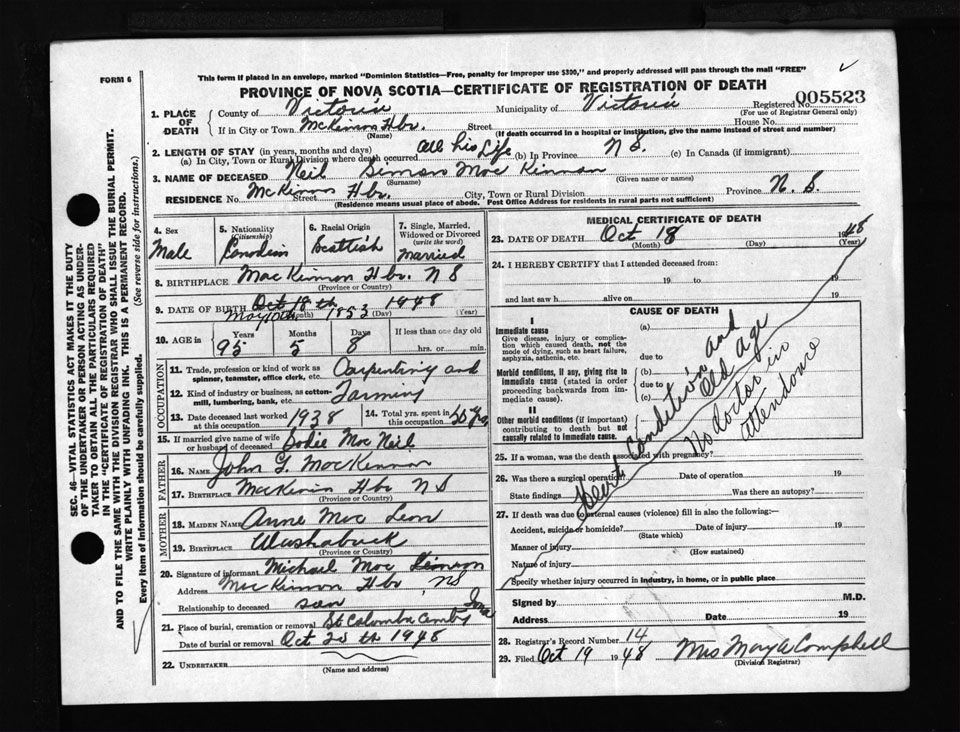 FORM 6
This form if placed in an envelope, marked "Dominion Statistics—Free, penalty for improper use $300," and properly addressed will pass through the mail "FREE"
PROVINCE OF NOVA SCOTIA—CERTIFICATE OF REGISTRATION OF DEATH
Registered No. 005523
(For use of Registrar General only)
1. PLACE OF DEATH
County of Victoria Municipality of Victoria
If in City or Town McKinnon Hbr. Street House No.
(Name) (If death occurred in a hospital or institution, give the name instead of street and number)
2. LENGTH OF STAY (in years, months and days)
(a) In City, Town or Rural Division where death occurred all his Life (b) In Province N S. (c) In Canada (if immigrant)
3. NAME OF DECEASED Neil Simon Mac Kinnon
(Surname) (Given name or names)
RESIDENCE No. McKinnon Hbr. Street City, Town or Rural Division Province N. S.
(Residence means usual place of abode. Post Office Address for residents in rural parts not sufficient)
4. Sex Male
5. Nationality (Citizenship) Canadian
6. Racial Origin Scottish
7. Single, Married, Widowed or Divorced (write the word) Married
8. BIRTHPLACE MacKinnon Hbr. N S
(Province or Country)
9. DATE OF BIRTH Oct 18 th 1948
May 10th 1853
(Month) (Day) (Year)
10. AGE in Years Months Days If less than one day old
95 5 8 hrs. or min.
OCCUPATION
11. Trade, profession or kind of work as spinner, teamster, office clerk, etc. Carpentry and
12. Kind of industry or business, as cotton-mill, lumbering, bank, etc. Farming
13. Date deceased last worked at this occupation 1938
14. Total yrs. spent in this occupation
15. If married give name of wife or husband of deceased Mac Neil
FATHER
16. NAME John G. MacKinnon
17. BIRTHPLACE MacKinnon Hbr N S
(Province or Country)
MOTHER
18. MAIDEN NAME Anne Mac Lean
19. BIRTHPLACE Washabuck
(Province or Country)
20. Signature of informant Michael Mac Kinnon
Address MacKinnon Hbr NS
Relationship to deceased son
21. Place of burial, cremation or removal St Columba Iona
Date of burial or removal Oct 20 th 1948
22. UNDERTAKER
(Name and address)
MEDICAL CERTIFICATE OF DEATH
23. DATE OF DEATH Oct 18 1948
(Month) (Day) (Year)
24. I HEREBY CERTIFY that I attended deceased from:
19 to 19
and last saw h alive on 19
CAUSE OF DEATH
I
Immediate cause
Give disease, injury or complication which caused death, not the mode of dying, such as heart failure, asphyxia, asthenia, etc.
(a)
due to
Morbid conditions, if any, giving rise to immediate cause (stated in order proceeding backwards from immediate cause).
(b)
due to
(c)
II
Other morbid conditions (if important) contributing to death but not causally related to immediate cause.
Heart condition and
Old age
No doctor in
attendance
25. If a woman, was the death associated with pregnancy?
26. Was there a surgical operation? Date of operation 19
State findings Was there an autopsy?
27. If death was due to external causes (violence) fill in also the following:—
Accident, suicide or homicide? Date of injury 19
(State which)
Manner of injury
(How sustained)
Nature of injury
Specify whether injury occurred in industry, in home, or in public place
Signed by M.D.
Address Date 19
28. Registrar's Record Number 14
29. Filed Oct 19 1948 Mrs Mary A Campbell
(Division Registrar)
SEC. 46—VITAL STATISTICS ACT MAKES IT THE DUTY
OF THE UNDERTAKER OR PERSON ACTING AS UNDERTAKER TO OBTAIN ALL THE PARTICULARS REQUIRED
IN THE "CERTIFICATE OF REGISTRATION OF DEATH"
AND TO FILE THE SAME WITH THE DIVISION REGISTRAR WHO SHALL ISSUE THE BURIAL PERMIT.
WRITE PLAINLY WITH UNFADING INK. THIS IS A PERMANENT RECORD.
Every item of Information should be carefully supplied. (See reverse side for instructions.)